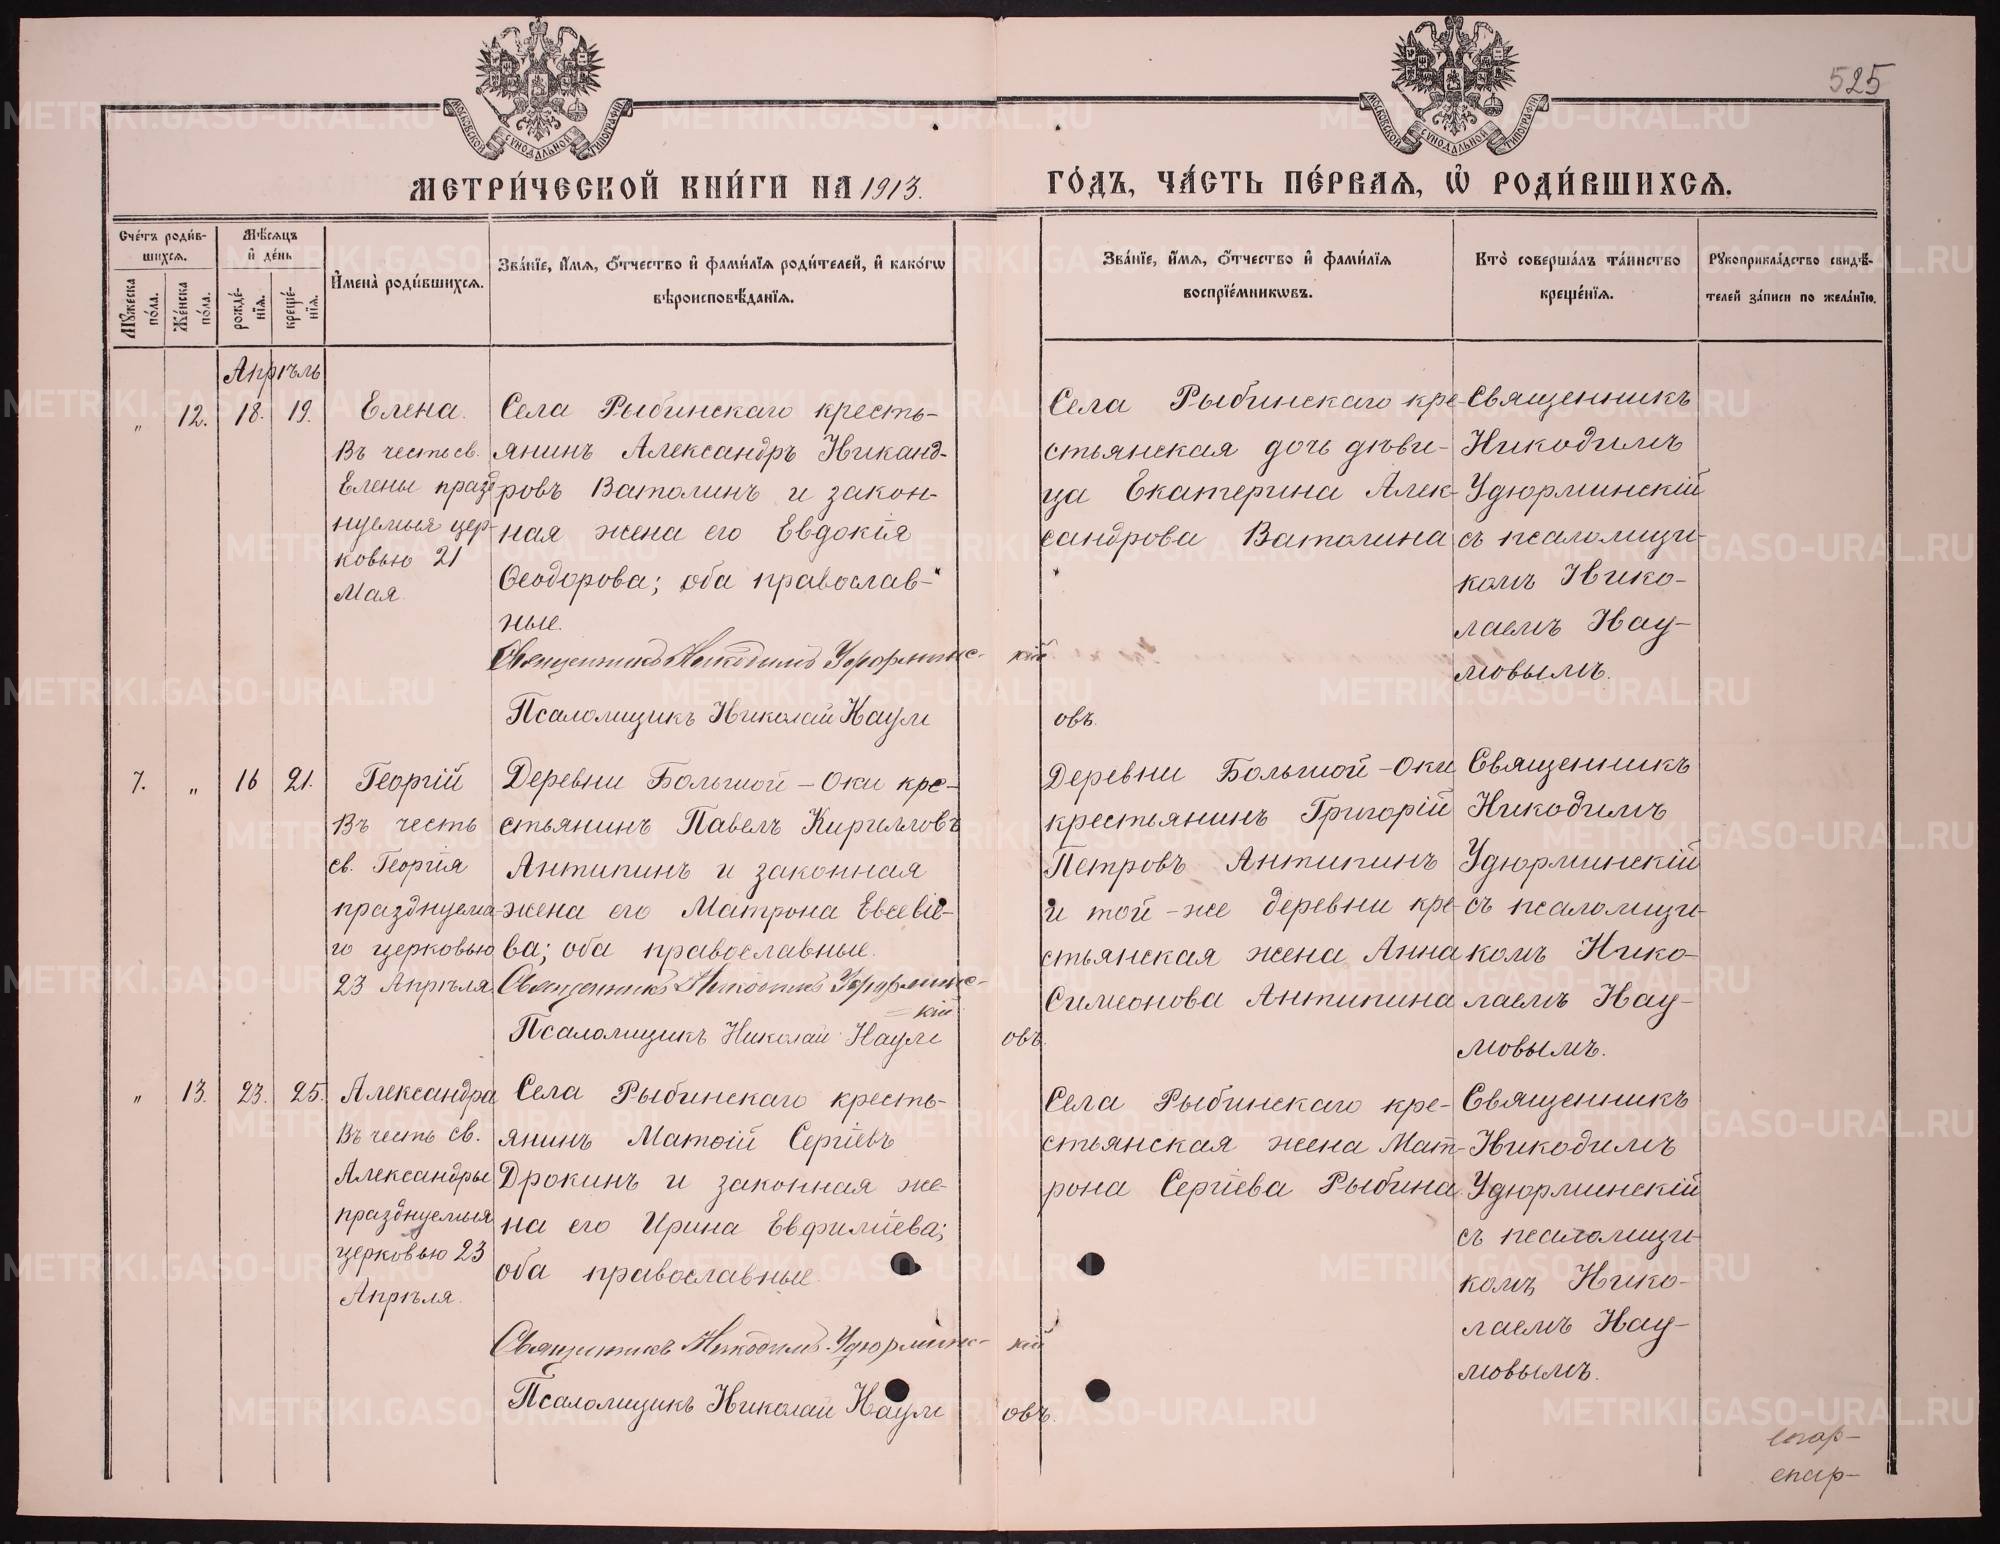 525
МЕТРИ́ЧЕСКОЙ КНИ́ГИ НА 1913.
ГО́ДЪ, ЧА́СТЬ ПЕ́РВАѦ, Ѡ РОДИ́ВШИХСѦ.
МОСКОВСКОЙ СѴНОДАЛЬНОЙ ТИПОГРАФІИ
МОСКОВСКОЙ СѴНОДАЛЬНОЙ ТИПОГРАФІИ
Сче́тъ роди́в-
шихсѧ.
Мꙋ́жеска по́ла.
Же́нска по́ла.
Мѣ́сѧцъ
и де́нь
рожде́-
нїѧ.
креще́-
нїѧ.
Имена̀ роди́вшихсѧ.
Зва́нїе, и́мѧ, ѻ́тчество и фами́лїѧ роди́телей, и како́гѡ
вѣроисповѣ́данїѧ.
Зва́нїе, и́мѧ, ѻ́тчество и фами́лїѧ
воспрїе́мникѡвъ.
Кто̀ соверша́лъ та́инство
креще́нїѧ.
Рꙋкоприкла́дство свидѣ́-
телей за́писи по жела́нїю.
Апрѣль
„ 12. 18. 19.
Елена.
Въ честь св.
Елены празд
нуемыя цер-
ковью 21
Мая.
Села Рыбинскаго кресть-
янинъ Александръ Никанд-
ровъ Ватолинъ и закон-
ная жена его Евдокія
Ѳеодорова; оба православ-
ные.
Священникъ Никодимъ Удюрминс-кій
Псаломщикъ Николай Наумовъ.
Села Рыбинскаго кре-
стьянская дочь дѣви-
ца Екатерина Алек-
сандрова Ватолина
Священникъ
Никодимъ
Удюрминскій
съ псаломщи-
комъ Нико-
лаемъ Нау-
мовымъ.
7. „ 16 21.
Георгій
Въ честь
св. Георгія
празднуема-
го церковью
23 Апрѣля
Деревни Большой-Оки кре-
стьянинъ Павелъ Кирилловъ
Антипинъ и законная
жена его Матрона Евсевіе-
ва; оба православные.
Священникъ Никодимъ Удюрминс-
кій
Псаломщикъ Николай Наумовъ.
Деревни Большой-Оки
крестьянинъ Григорій
Петровъ Антипинъ
и той-же деревни кре-
стьянская жена Анна
Симеонова Антипина
Священникъ
Никодимъ
Удюрминскій
съ псаломщи-
комъ Нико-
лаемъ Нау-
мовымъ.
„ 13. 23. 25.
Александра
Въ честь св.
Александры
празднуемыя
церковью 23
Апрѣля.
Села Рыбинскаго кресть-
янинъ Матѳій Сергіевъ
Дрокинъ и законная же-
на его Ирина Евфиміева;
оба православные.
Священникъ Никодимъ Удюрминс-кій
Псаломщикъ Николай Наумовъ.
Села Рыбинскаго кре-
стьянская жена Мат-
рона Сергіева Рыбина
Священникъ
Никодимъ
Удюрминскій
съ псаломщи-
комъ Нико-
лаемъ Нау-
мовымъ.
METRIKI.GASO-URAL.RU